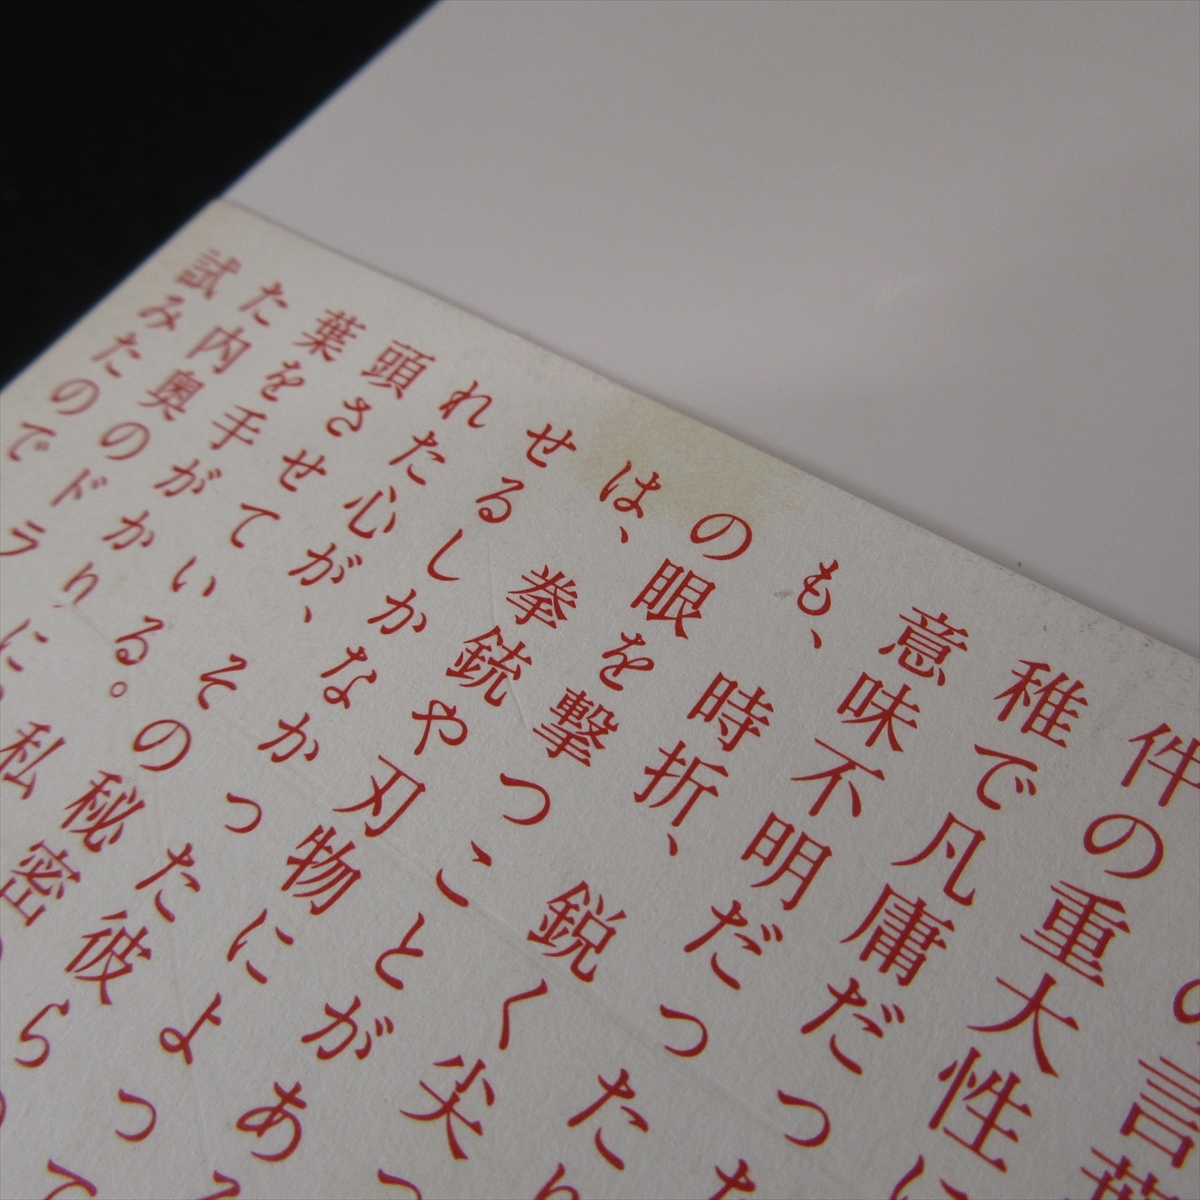 の言葉
件の重大性に
稚で凡庸だった
意味不明だった
も、時折、鋭く尖っ
の眼を撃つことがある
は、拳銃や刃物によって
せるしかなかった彼らの
れた心が、その秘密
頭させている。私
葉を手がかりに
た内奥のドラ
試みたので